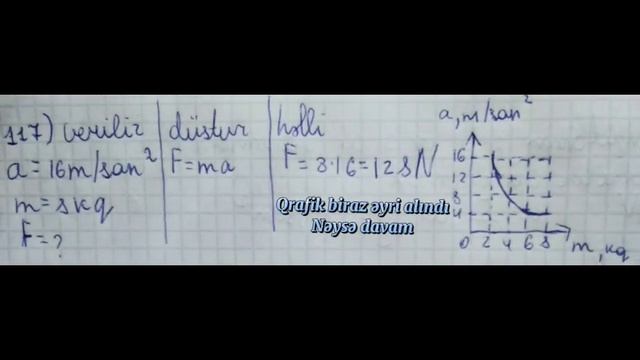 117) verilir düstur həlli
a=16m/san² F=ma F=8·16=128N
m=8kq
F=?
Qrafik biraz əyri alındı
Nəysə davam
a,m/san²
16
12
8
4
0 2 4 6 8 m,kq